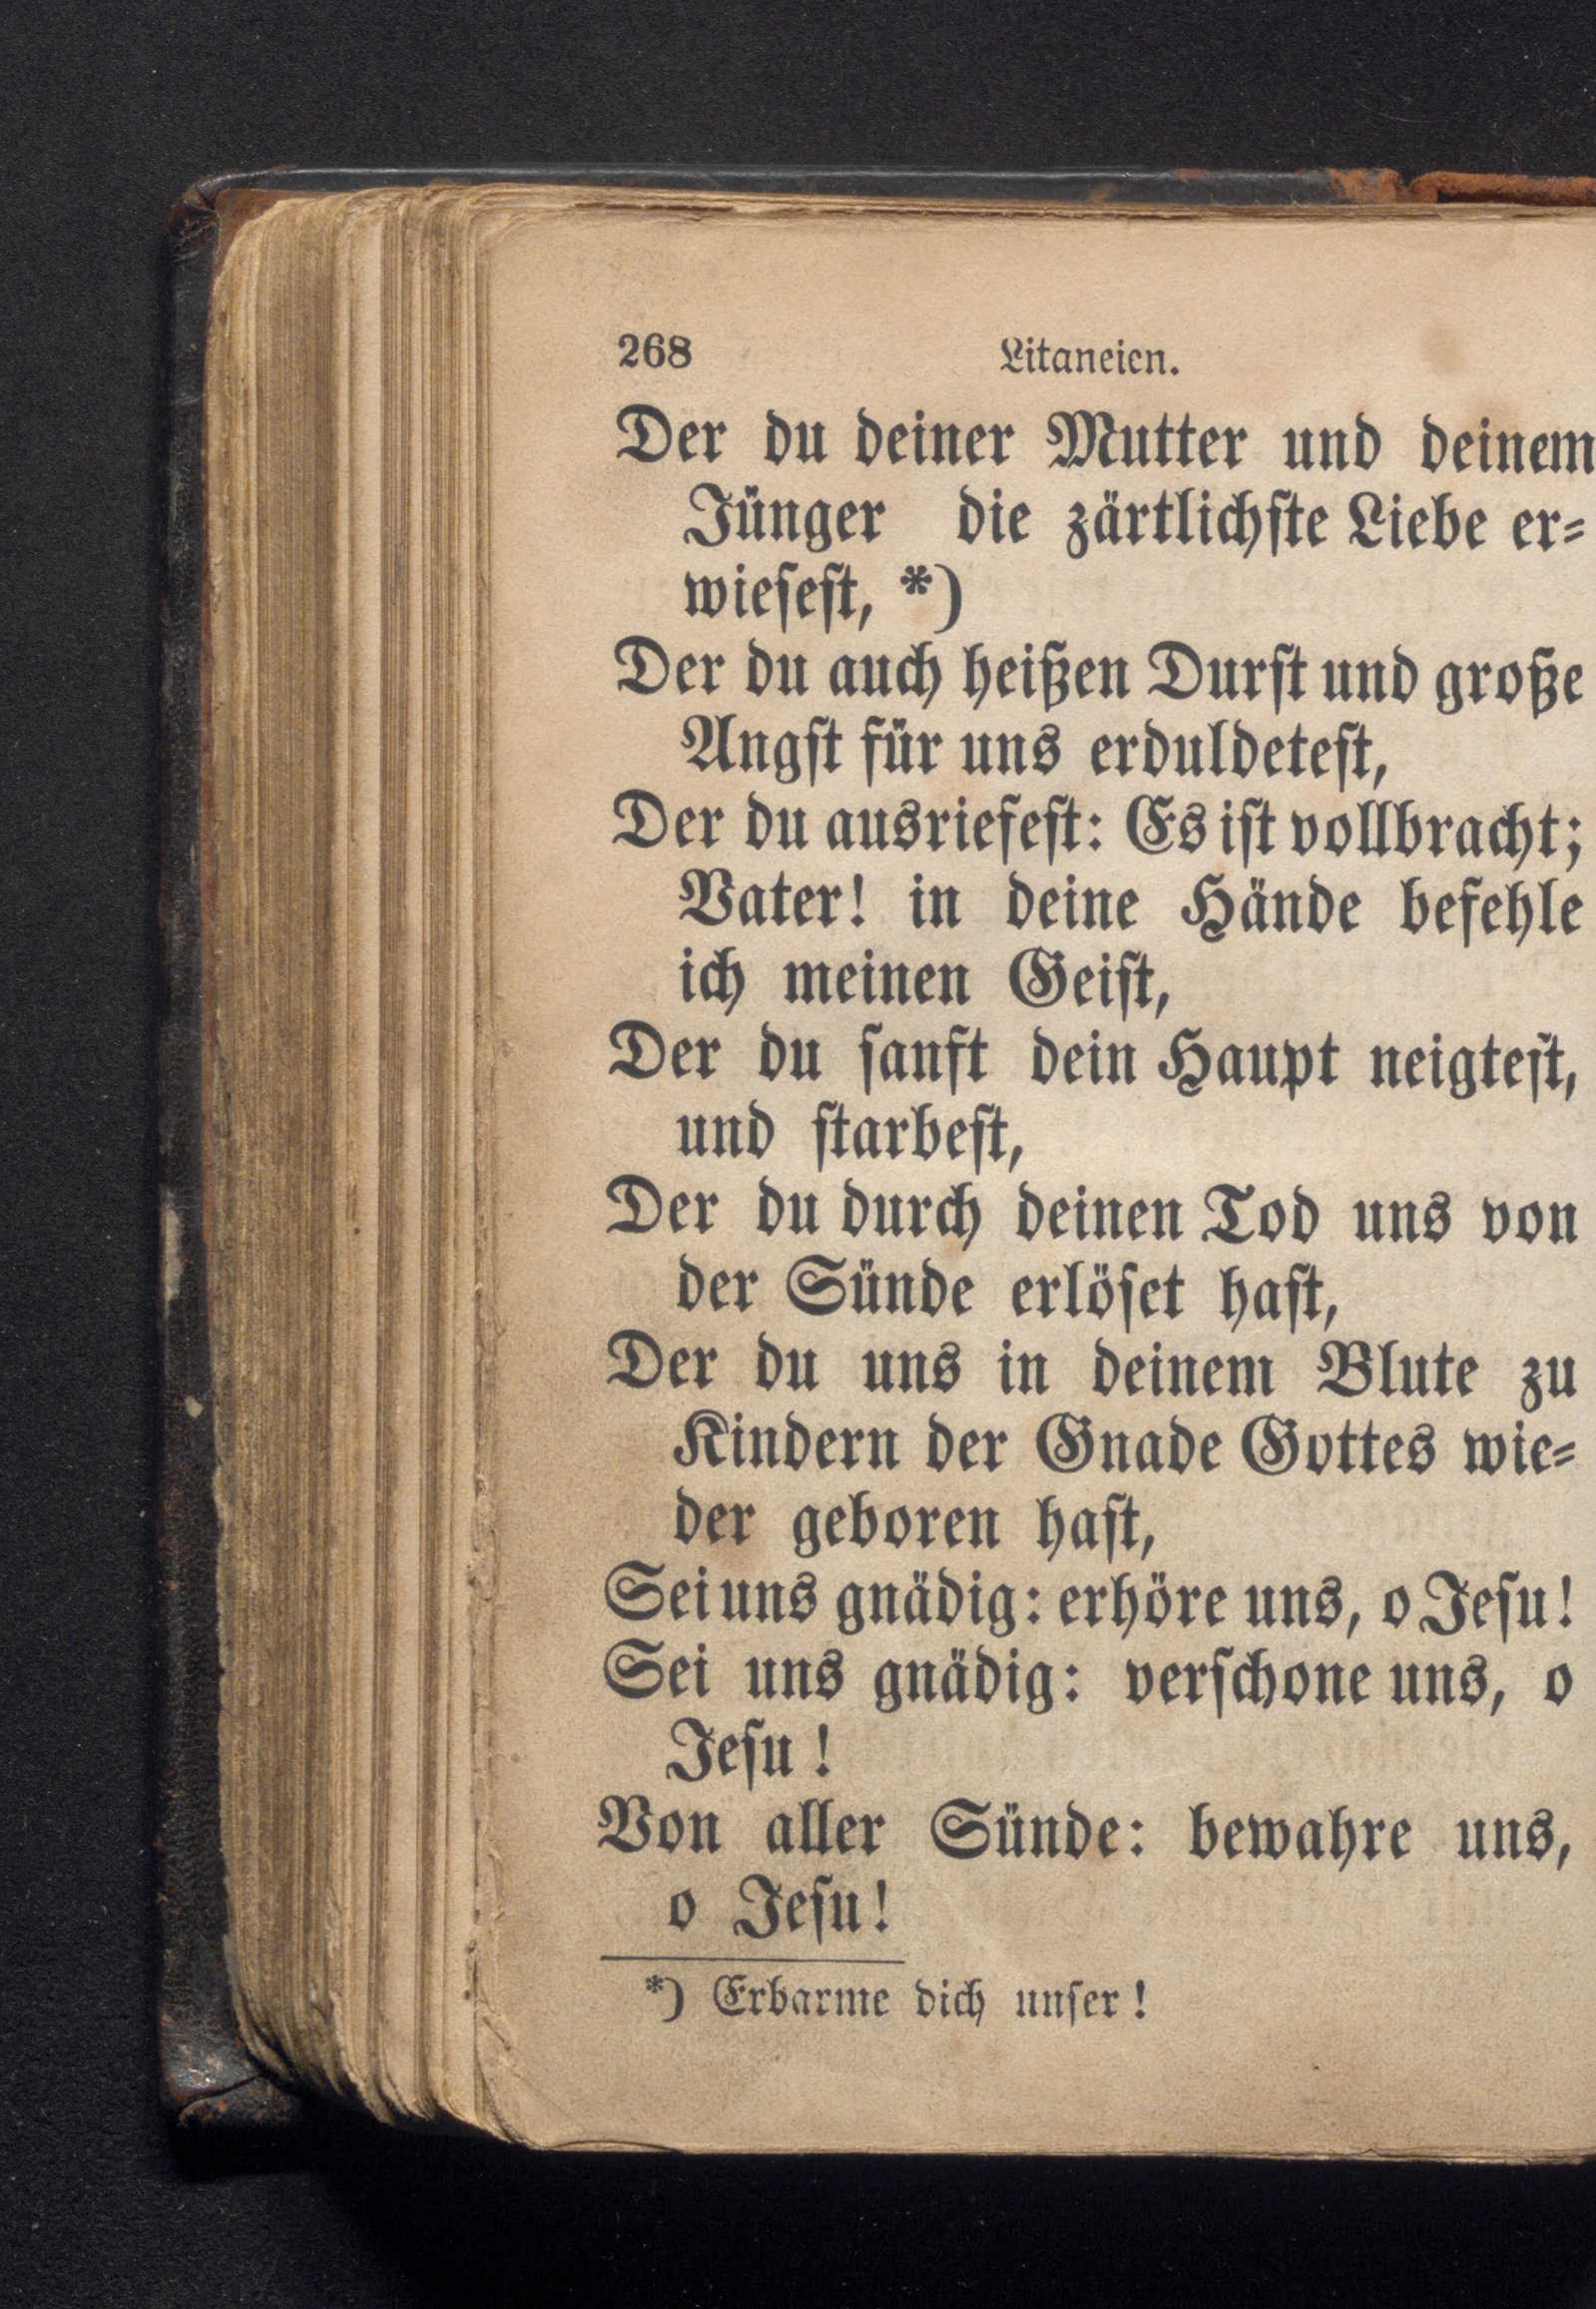 268 Litaneien.
Der du deiner Mutter und deinem
Jünger die zärtlichſte Liebe er-
wieſeſt, *)
Der du auch heißen Durſt und große
Angſt für uns erduldeteſt,
Der du ausriefeſt: Es iſt vollbracht;
Vater! in deine Hände befehle
ich meinen Geiſt,
Der du ſanft dein Haupt neigteſt,
und ſtarbeſt,
Der du durch deinen Tod uns von
der Sünde erlöſet haſt,
Der du uns in deinem Blute zu
Kindern der Gnade Gottes wie-
der geboren haſt,
Sei uns gnädig: erhöre uns, o Jeſu!
Sei uns gnädig: verſchone uns, o
Jeſu!
Von aller Sünde: bewahre uns,
o Jeſu!
*) Erbarme dich unſer!